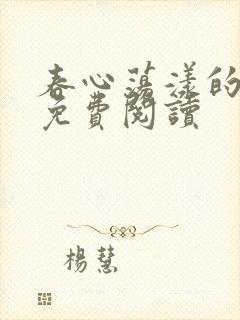 春心荡漾的
免費閱讀
楊慧